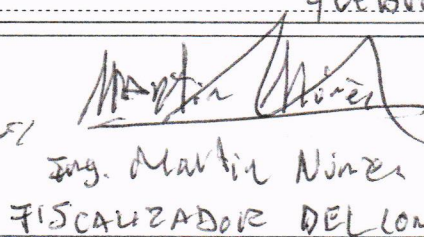 Martin Núñez
Ing. Martin Núñez
FISCALIZADOR DEL CON